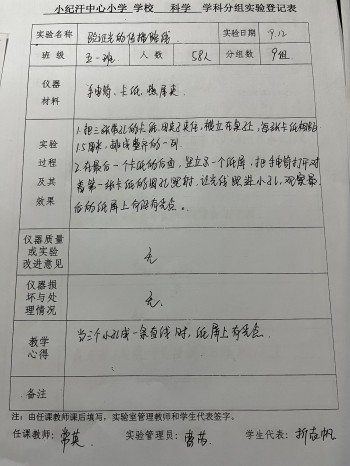 小纪汗中心小学 学校 科学 学科分组实验登记表
实验名称 验证光的传播路线 实验日期 9.12
班级 五一班 人数 58人 分组数 9组
仪器材料 手电筒、卡纸、燕尾夹
实验过程及其效果
1.把三张带孔的卡纸,用夹子夹住,横立在桌上,每张卡纸间隔
15厘米,排成整齐的一列
2.在最后一个卡纸的后面,竖立一个纸屏,把手电筒打开对
着第一张卡纸的圆孔照射,让光线照进小孔,观察最
后的纸屏上有没有光。
仪器质量或实验改进意见 无
仪器损坏与处理情况 无
教学心得 当三个小孔成一条直线时,纸屏上有光
备注
注:由任课教师课后填写,实验室管理教师和学生代表签字。
任课教师:常英 实验管理员: 学生代表:折志帆